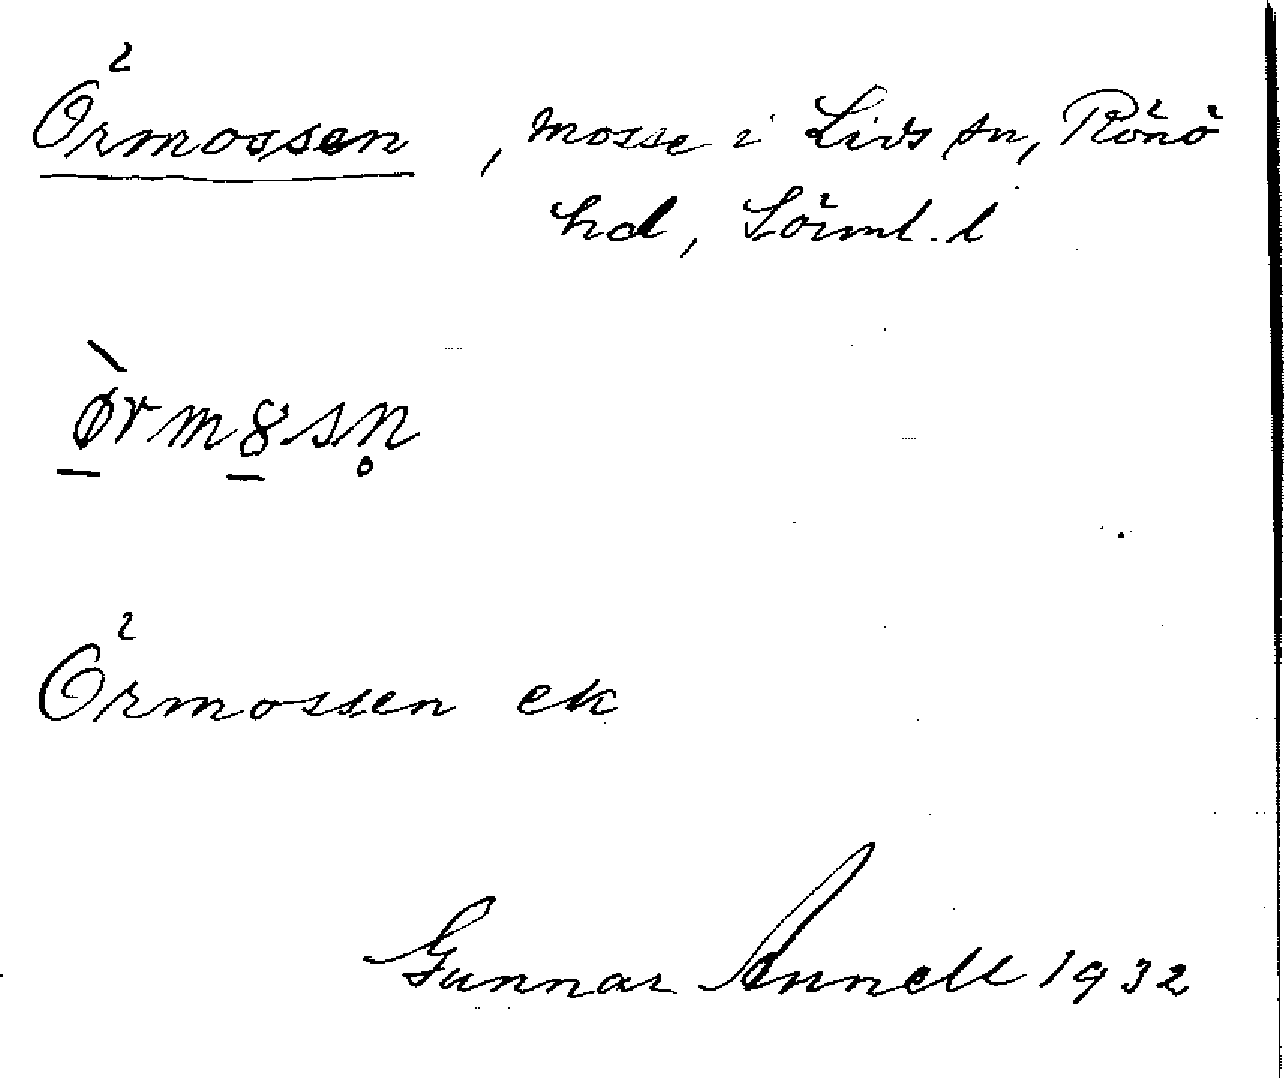 Örmossen, mosse i Lids sn, Rönö
hd, Sörml. l
ørm8sn̥
Örmossen ek
Gunnar Annell 1932